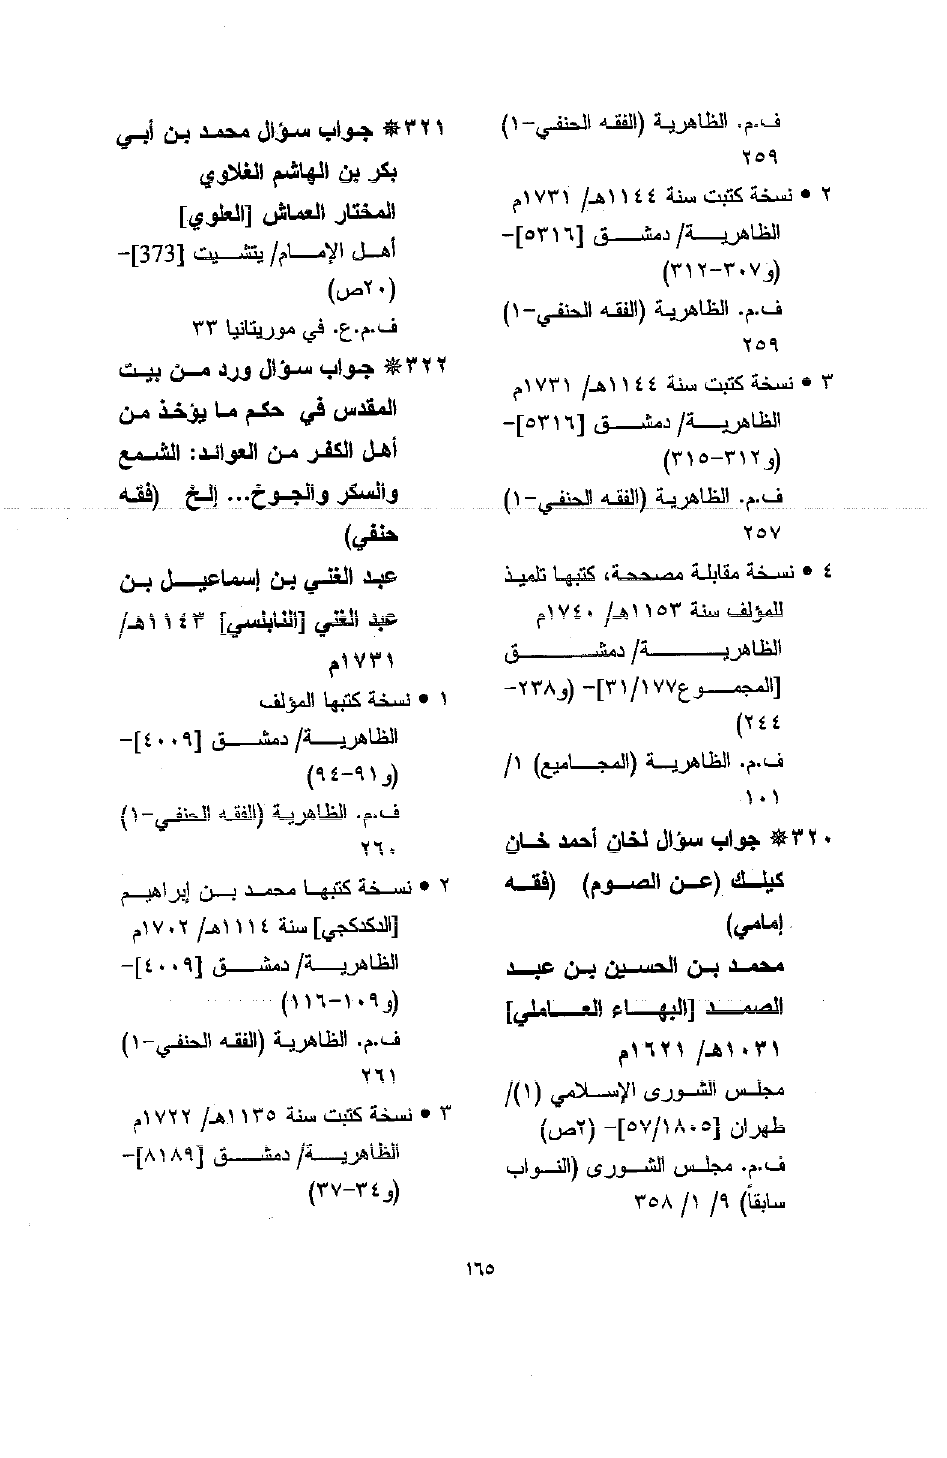 ف.م. الظاهرية (الفقه الحنفي-١)
٢٥٩
٢ • نسخة كتبت سنة ١١٤٤هـ/ ١٧٣١م
الظاهرية/ دمشق [٥٣١٦]-
(و٣٠٧-٣١٢)
ف.م. الظاهرية (الفقه الحنفي-١)
٢٥٩
٣ • نسخة كتبت سنة ١١٤٤هـ/ ١٧٣١م
الظاهرية/ دمشق [٥٣١٦]-
(و٣١٢-٣١٥)
ف.م. الظاهرية (الفقه الحنفي-١)
٢٥٧
٤ • نسخة مقابلة مصححة، كتبها تلميذ
للمؤلف سنة ١١٥٣هـ/ ١٧٤٠م
الظاهرية/ دمشق
[المجموع٣١/١٧٧]- (و٢٣٨-
٢٤٤)
ف.م. الظاهرية (المجاميع) ١/
١٠١
٣٢٠* جواب سؤال لخان أحمد خان
كيلك (عن الصوم) (فقه
إمامي)
محمد بن الحسين بن عبد
الصمد [البهاء العاملي]
١٠٣١هـ/ ١٦٢١م
مجلس الشورى الإسلامي (١)/
طهران [٥٧/١٨٠٥]- (٢ص)
ف.م. مجلس الشورى (النواب
سابقاً) ٩/ ١/ ٣٥٨
٣٢١* جواب سؤال محمد بن أبي
بكر بن الهاشم الغلاوي
المختار العماش [العلوي]
أهل الإمام/ يتشيت [373]-
(٢٠ص)
ف.م.ع. في موريتانيا ٣٣
٣٢٢* جواب سؤال ورد من بيت
المقدس في حكم ما يؤخذ من
أهل الكفر من العوائد: الشمع
والسكر والجوخ... إلخ (فقه
حنفي)
عبد الغني بن إسماعيل بن
عبد الغني [النابلسي] ١١٤٣هـ/
١٧٣١م
١ • نسخة كتبها المؤلف
الظاهرية/ دمشق [٤٠٠٩]-
(و٩١-٩٤)
ف.م. الظاهرية (الفقه الحنفي-١)
٢٦٠
٢ • نسخة كتبها محمد بن إبراهيم
[الدكدكجي] سنة ١١١٤هـ/ ١٧٠٢م
الظاهرية/ دمشق [٤٠٠٩]-
(و١٠٩-١١٦)
ف.م. الظاهرية (الفقه الحنفي-١)
٢٦١
٣ • نسخة كتبت سنة ١١٣٥هـ/ ١٧٢٢م
الظاهرية/ دمشق [٨١٨٩]-
(و٣٤-٣٧)
١٦٥